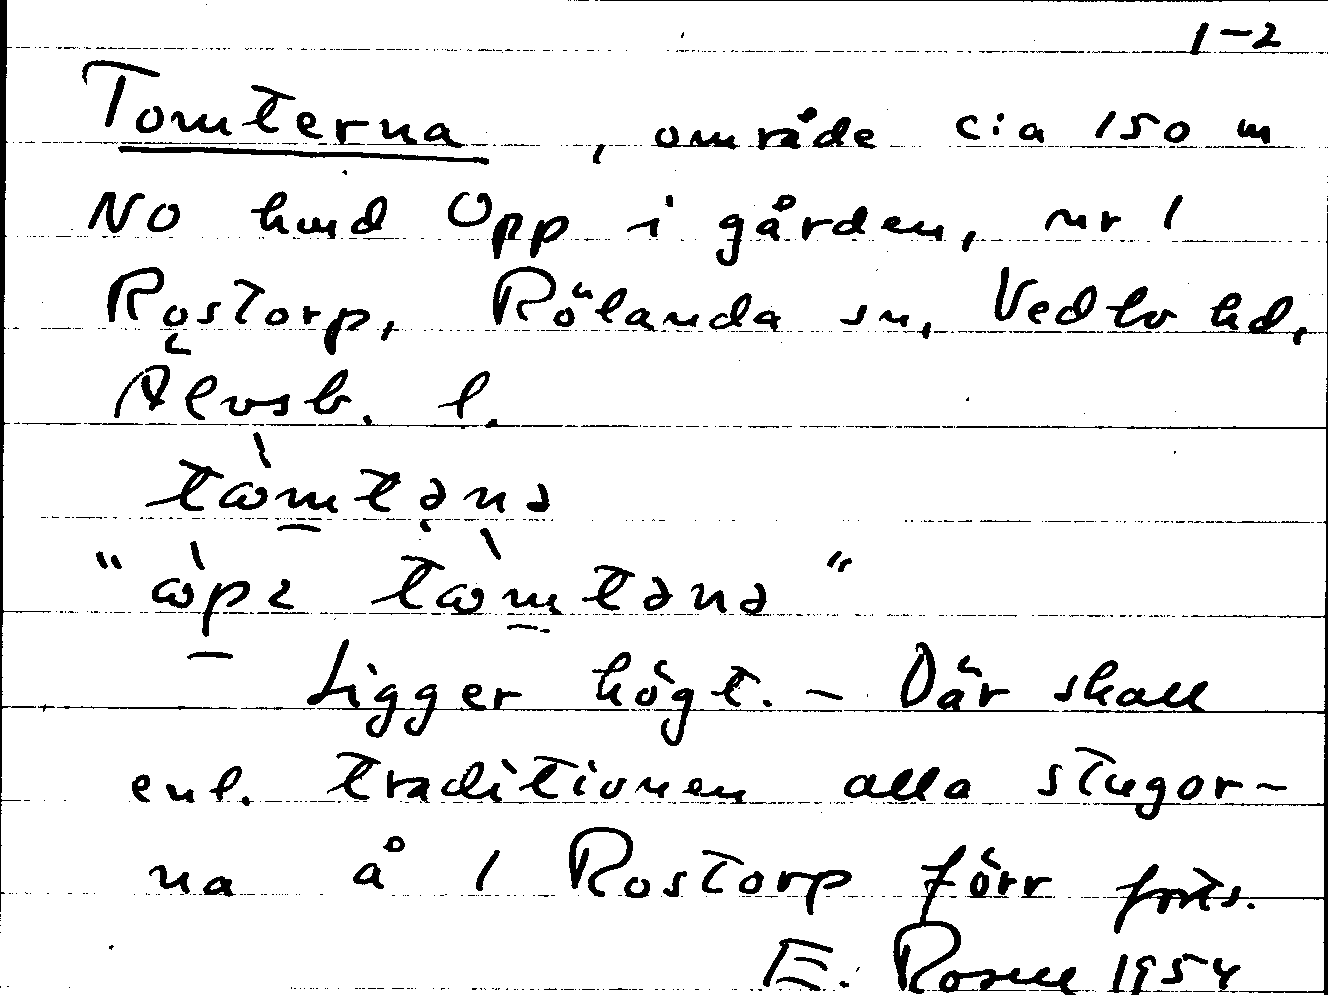 1-2
Tomterna, område c:a 150 m
NO hmd Opp i gården, nr 1
Rostorp, Rölanda sn, Vedbo hd,
Älvsb. l.
tòmtəna
"òpe tòmtəna"
Ligger högt. - Där skall
enl. traditionen alla stugor-
na å 1 Rostorp förr forts.
E. Rosell 1954